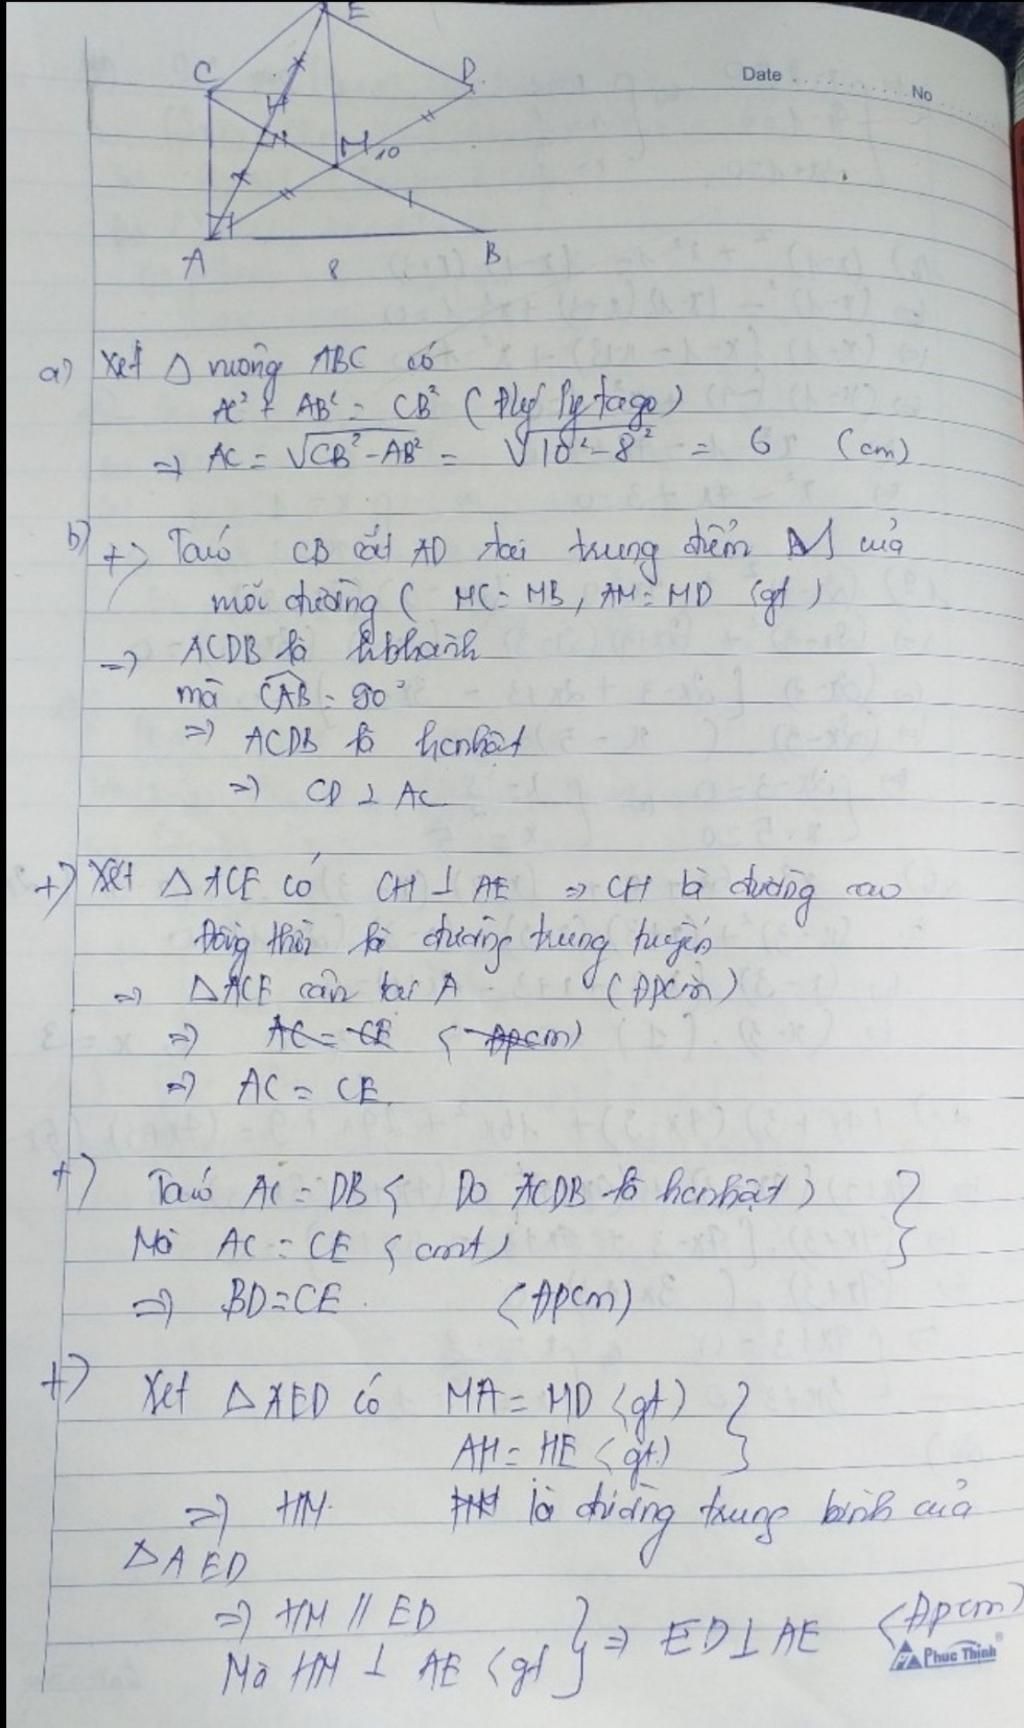 E
C
D
Date
No
H
M
10
A
8
B
a) Xét Δ vuông ABC có
AC² + AB² = CB² (Đlý Pytago)
=> AC = √CB²-AB² = √10²-8² = 6 (cm)
b) +) Ta có CB cắt AD tại trung điểm M của
mỗi đường ( MC = MB, AM = MD (gt)
=> ACDB là hbhành
mà CAB = 90°
=> ACDB là hcnhật
=> CD ⊥ AC
+) Xét Δ ACE có CH ⊥ AE => CH là đường cao
Đồng thời là đường trung tuyến
=> ΔACE cân tại A (Đpcm)
=> AC = CE (Đpcm)
=> AC = CE.
+) Ta có AC = DB ( Do ACDB là hcnhật) }
Mà AC = CE (cmt)
=> BD=CE. (Đpcm)
+) Xét ΔAED có MA = MD (gt) }
AH = HE (gt)
=> HM. HM là đường trung bình của
ΔAED
=> HM // ED
Mà HM ⊥ AE (gt } => ED⊥AE (Đpcm)
Phuc Thinh